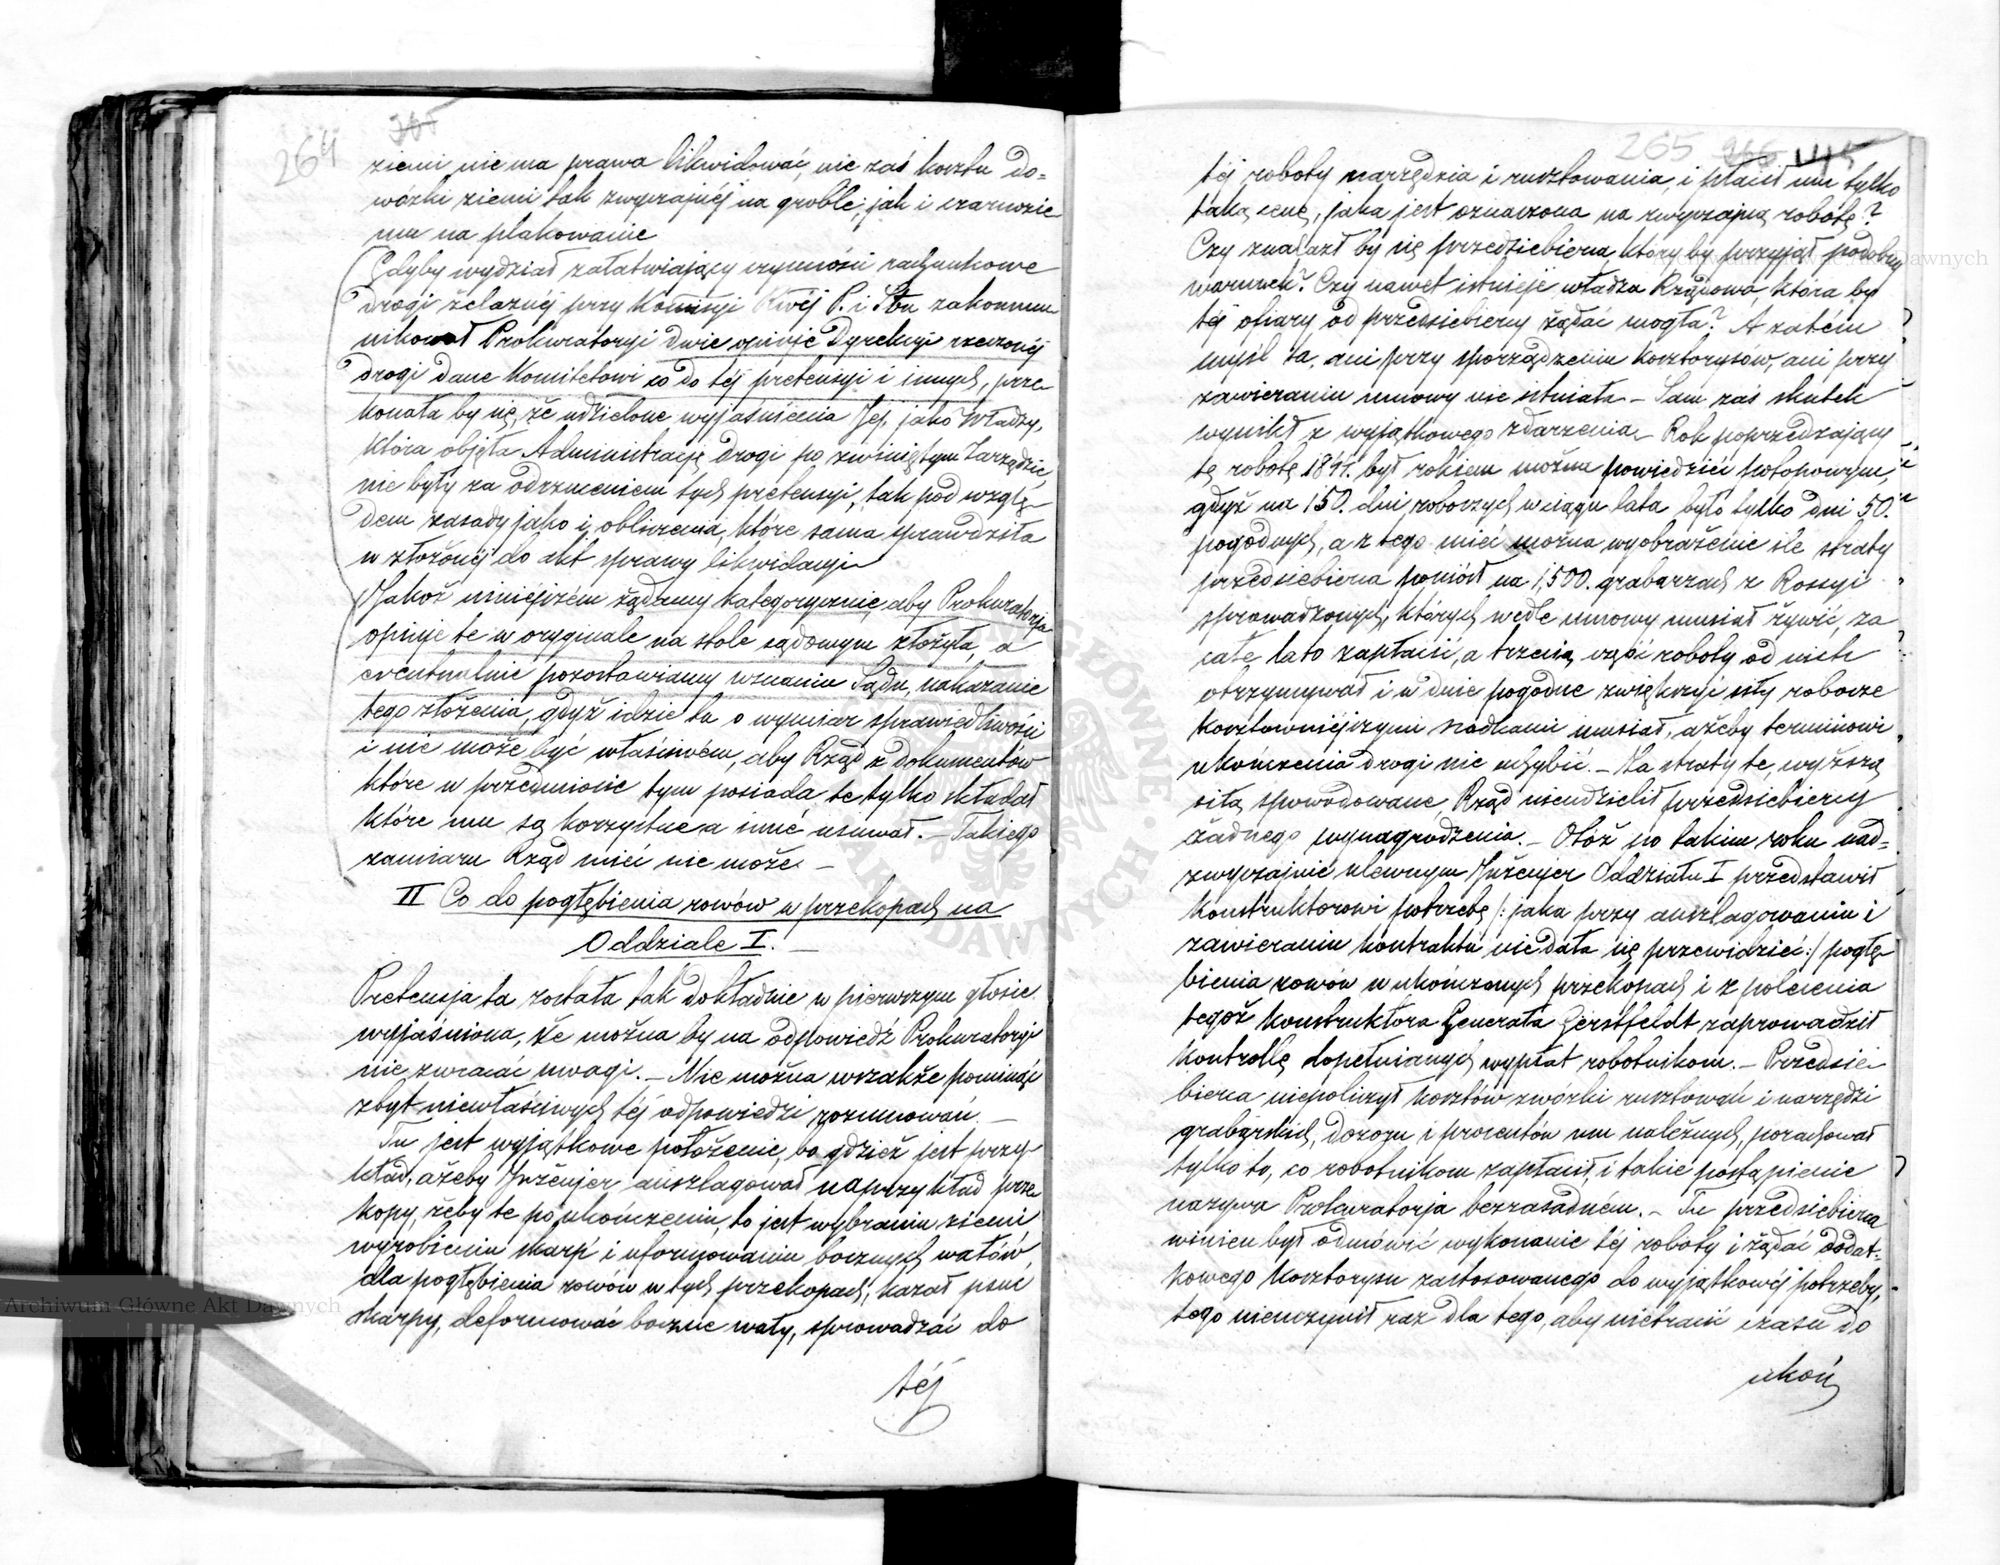 264
ziemi nie ma prawa likwidować, nie zaś kosztu do=
wózki ziemi tak zwyczajnéj na groble, jak i czarnozie
mu na plakowanie
Gdyby wydział załatwiający czynności rachunkowe
drogi żelaznéj przy Komisyi Rwéj P. i Sbu zakommu
nikował Prokuratoryi dwie opinije Dyrekcyi rzeczonéj
drogi dane Komitetowi co do téj pretensyi i innych, prze
konała by się, że udzielone wyjaśnienia Jéj, jako Władzy,
która objęła Administracyę drogi po zwiniętym Zarządzie,
nie były za odrzuceniem tych pretensyi, tak pod wzglę
dem zasady jako i obliczenia, które sama sprawdziła
w złożonéj do akt sprawy likwidacyi
Jakoż niniéjszém żądamy kategorycznie, aby Prokuratorja
opinije te w oryginale na stole sądowym złożyła, a
ewentualnie pozostawiamy uznaniu Sądu, nakazanie
tego złożenia, gdyż idzie tu o wymiar sprawiedliwości
i nie może być właściwém, aby Rząd z dokumentów
które w przedmiocie tym posiada te tylko składał
które mu są korzystne a inne usuwał. – Takiego
zamiaru Rząd mieć nie może. –
II Co do pogłębienia rowów w przekopach na
Oddziale I. –
Pretensja ta została tak dokładnie w pierwszym głosie
wyjaśniona, że można by na odpowiedź Prokuratoryi
nie zwracać uwagi. – Nie można wszakże pominąć
zbyt niewłaściwych téj odpowiedzi rozumowań. –
Tu jest wyjątkowe położenie, bo gdzież jest przy
kład, ażeby Inżenjer anszlagował naprzykład prze
kopy, żeby te po ukończeniu, to jest wybraniu ziemi,
wyrobieniu skarp i uformowaniu bocznych wałów,
dla pogłębienia rowów w tych przekopach, kazał psuć
skarpy, deformować boczne wały, sprowadzać do
téj
265
téj roboty narzędzia i rusztowania, i płacił mu tylko
taką cenę, jaka jest oznaczona na zwyczajną robotę?
Czy znalazł by się przedsiebierca, który by przyjął podobny
warunek? Czy nawet istnieje władza Rządowa, która by
téj ofiary od przedsiebiercy żądać mogła? A zatém
myśl ta, ani przy sporządzeniu kosztorysów, ani przy
zawieraniu umowy nie istniała – Sam zaś skutek
wynikł z wyjątkowego zdarzenia – Rok poprzedzający
tę robotę 1844. był rokiem można powiedziéć potopowym,
gdyż na 150. dni roboczych w ciągu lata było tylko dni 50.
pogodnych, a z tego miéć można wyobrażenie ile straty
przedsiebierca poniósł na 1,500. grabarzach z Rossyi
sprowadzonych, których wedle umowy musiał żywić, za
całe lato zapłacić, a trzecią część roboty od nich
otrzymywał i w dnie pogodne zwiększyć siły robocze
kosztowniéjszymi środkami musiał, ażeby terminowi
ukończenia drogi nie uchybić. – Za straty te, wyższą
siłą spowodowane, Rząd nieudzielił przedsiebiercy
żadnego wynagrodzenia. – Otóż po takim roku nad=
zwyczajnie ulewnym Inżenjer Oddziału I przedstawił
Konstruktorowi potrzebę /: jaka przy anszlagowaniu i
zawieraniu kontraktu nie dała się przewidziéć :/ pogłę
bienia rowów w ukończonych przekopach i z polecenia
tegoż Konstruktora Generała Gerstfeldt zaprowadził
kontrollę dopełnianych wypłat robotnikom. – Przedsie
bierca niepoliczył kosztów zwózki rusztowań i narzędzi
grabarskich, dozoru i procentów mu należnych, porachował
tylko to, co robotnikom zapłacił, i takie postąpienie
nazywa Prokuratorja bezzasadném. – Tu przedsiebierca
winien był odmówić wykonanie téj roboty i żądać dodat=
kowego kosztorysu zastosowanego do wyjątkowéj potrzeby,
tego nieuczynił raz dla tego, aby nietracić czasu do
ukoń
Archiwum Główne Akt Dawnych